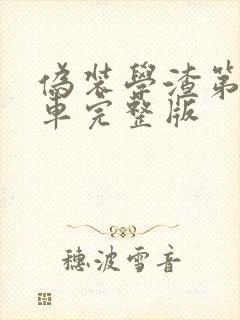 偽装學渣第
車完整版
穗波雪音